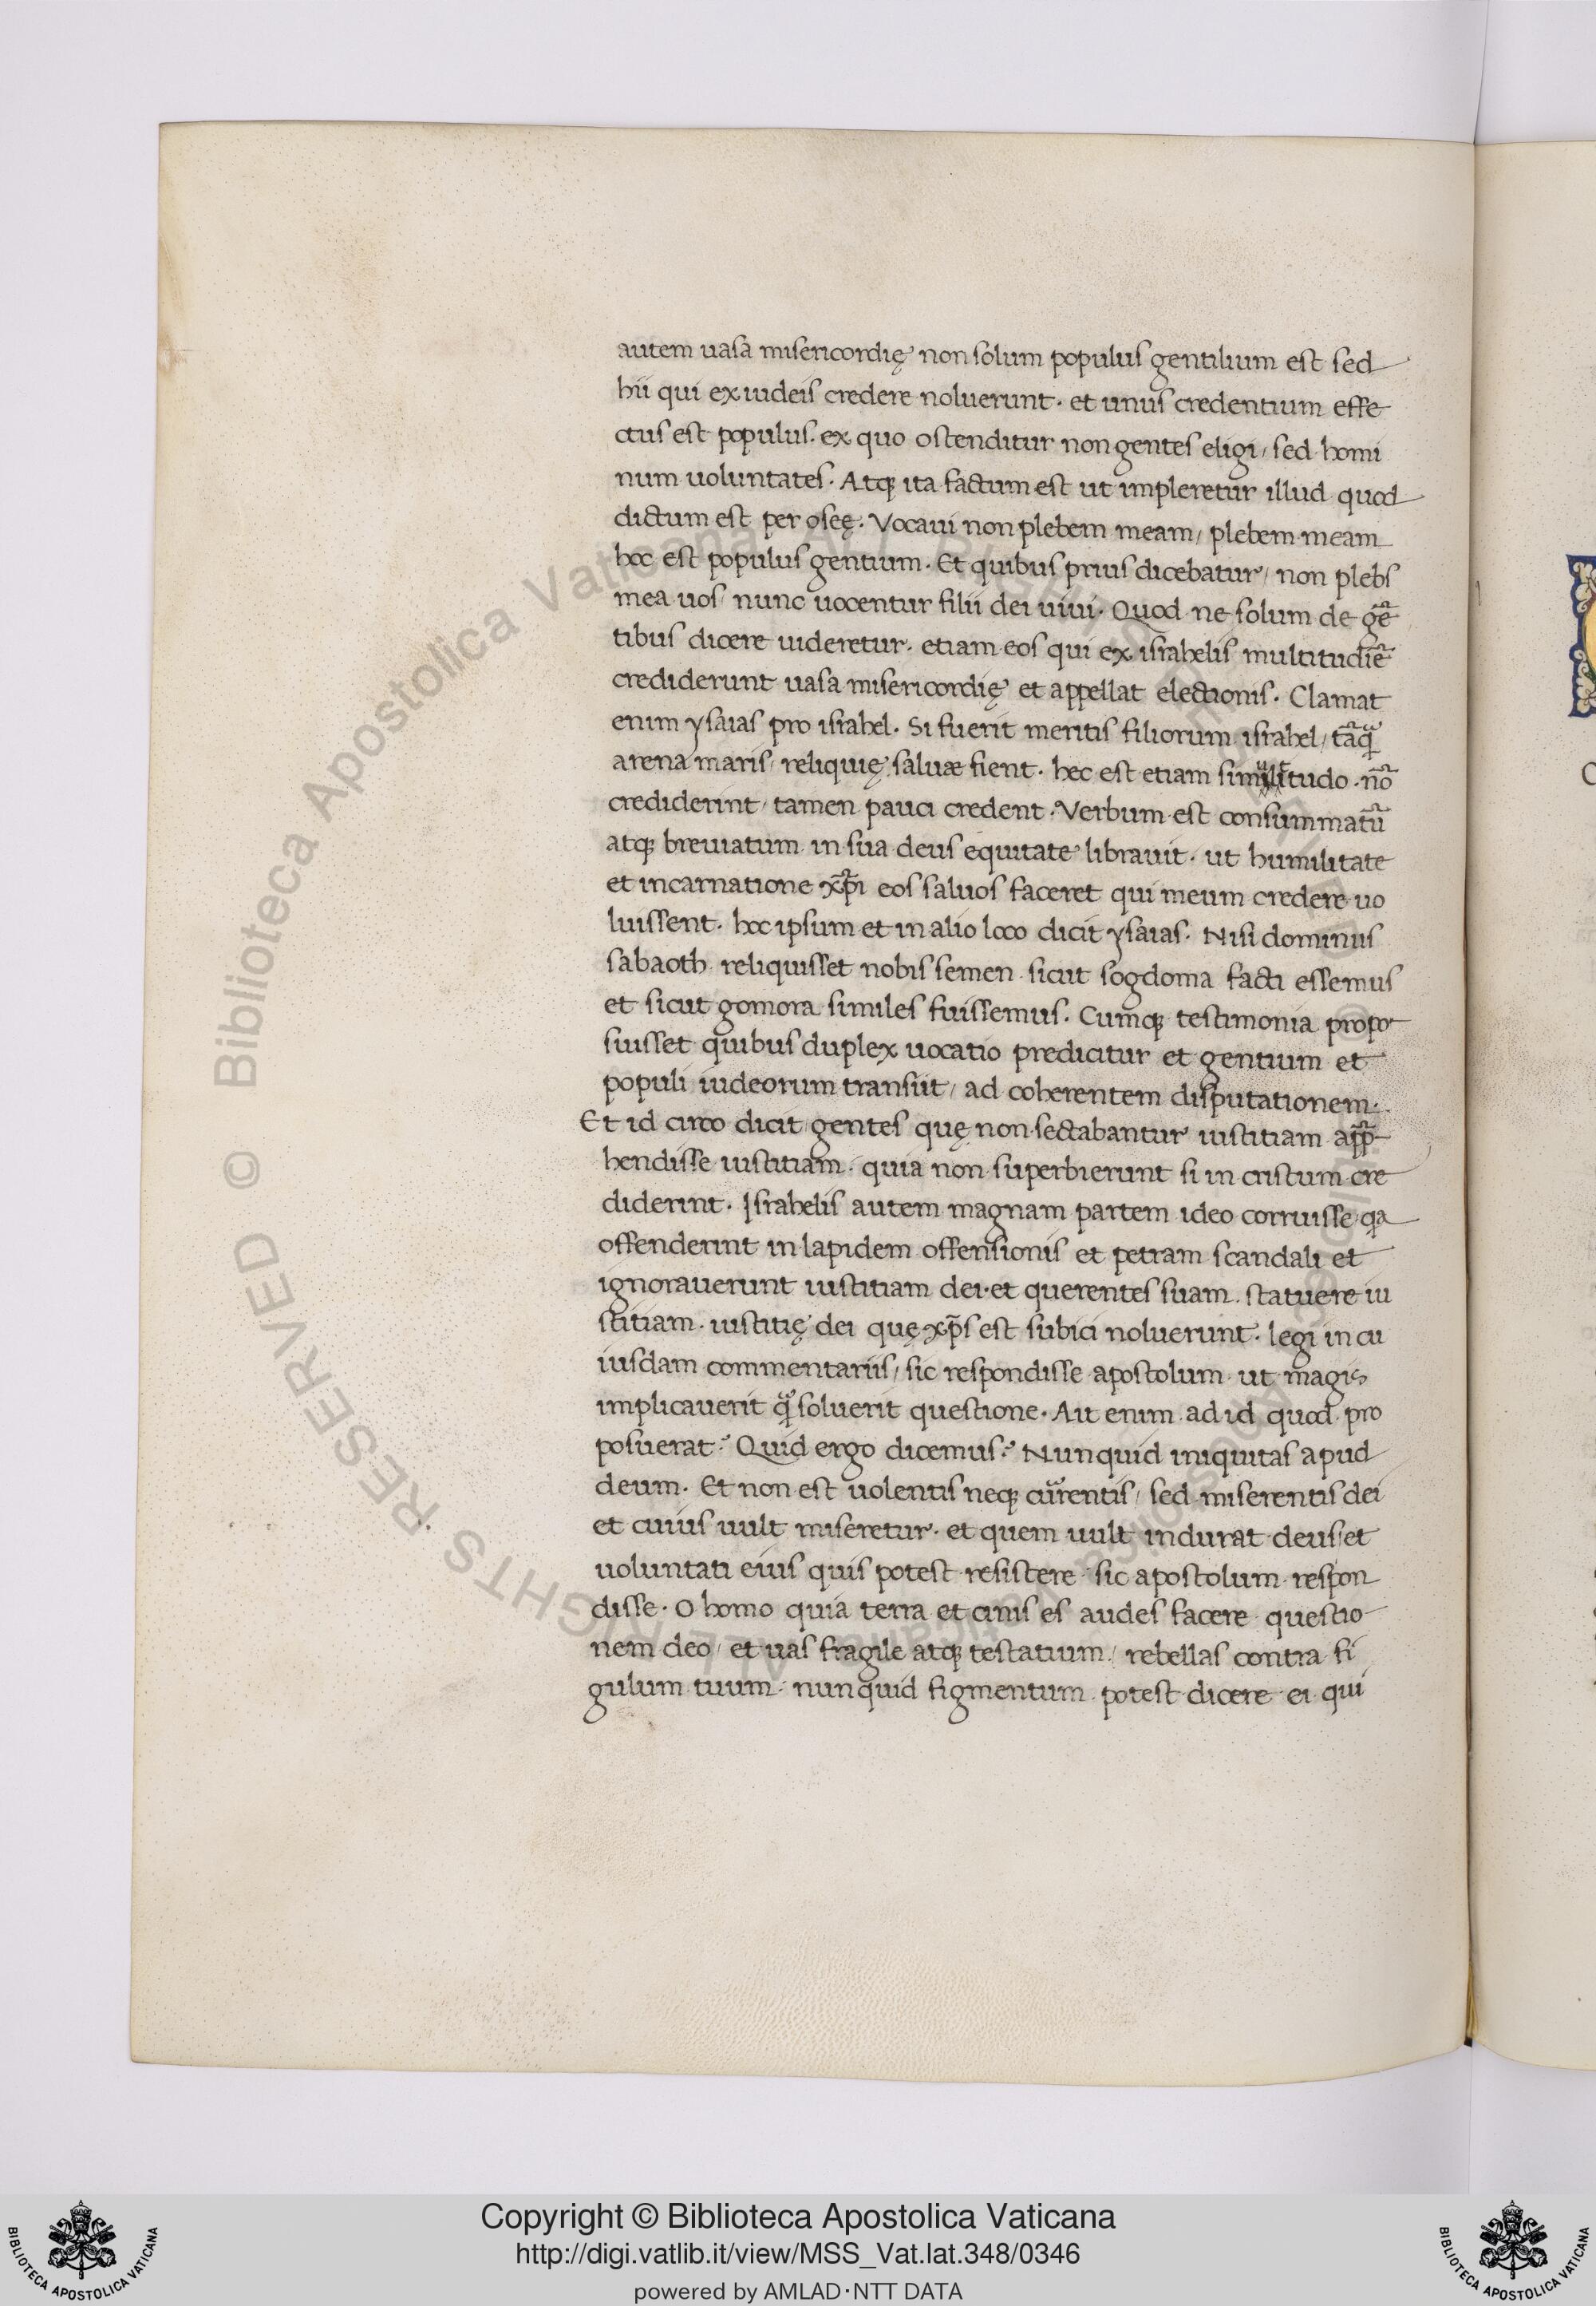 autem uasa misericordię non solum populus gentilium est sed
hii qui ex iudeis credere noluerunt. et unus credentium effe
ctus est populus. ex quo ostenditur non gentes eligi/ sed homi
num uoluntates. Atq; ita factum est ut impleretur illud quod
dictum est per oseę. Vocaui non plebem meam/ plebem meam
hoc est populus gentium. Et quibus prius dicebatur/ non plebs
mea uos/ nunc uocentur filii dei uiui. Quod ne solum de gē
tibus dicere uideretur. etiam eos qui ex israhelis multitudīe
crediderunt uasa misericordię et appellat electionis. Clamat
enim ysaias pro israhel. Si fuerit meritis filiorum israhel/ tāq̃
arena maris/ reliquię saluæ fient. hec est etiam tudo. nō
crediderint/ tamen pauci credent. Verbum est consummatū
atq; breuiatum in sua deus equitate librauit. ut humilitate
et incarnatione xp̄i eos saluos faceret qui meum credere uo
luissent. hoc ipsum et in alio loco dicit ysaias. Nisi dominus
sabaoth reliquisset nobis semen sicut sogdoma facti essemus
et sicut gomora similes fuissemus. Cumq; testimonia propo
suisset quibus duplex uocatio predicitur et gentium et
populi iudeorum transiit/ ad coherentem disputationem.
Et id circo dicit gentes quę non sectabantur iustitiam app̄
hendisse iustitiam. quia non superbierunt si in cristum cre
diderint. Israhelis autem magnam partem ideo corruisse qa
offenderint in lapidem offensionis et petram scandali et
ignorauerunt iustitiam dei. et querentes suam statuere iu
stitiam. iustitię dei quę xp̄s est subici noluerunt. legi in cu
iusdam commentariis/ sic respondisse apostolum ut magis
implicauerit q̃ soluerit questione. Ait enim ad id quod pro
posuerat. Quid ergo dicemus? Nunquid iniquitas apud
deum. Et non est uolentis neq; currentis/ sed miserentis dei
et cuius uult miseretur. et quem uult indurat deus et
uoluntati eius quis potest resistere sic apostolum respon
disse. O homo quia terra et cinis es audes facere questio
nem deo/ et uas fragile atq; testatium/ rebellas contra fi
gulum tuum. nunquid figmentum potest dicere ei qui
© Biblioteca Apostolica Vaticana ALL RIGHTS RESERVED
Copyright © Biblioteca Apostolica Vaticana
http://digi.vatlib.it/view/MSS_Vat.lat.348/0346
powered by AMLAD·NTT DATA
BIBLIOTECA APOSTOLICA VATICANA
BIBLIOTECA APOSTOLICA VATICANA